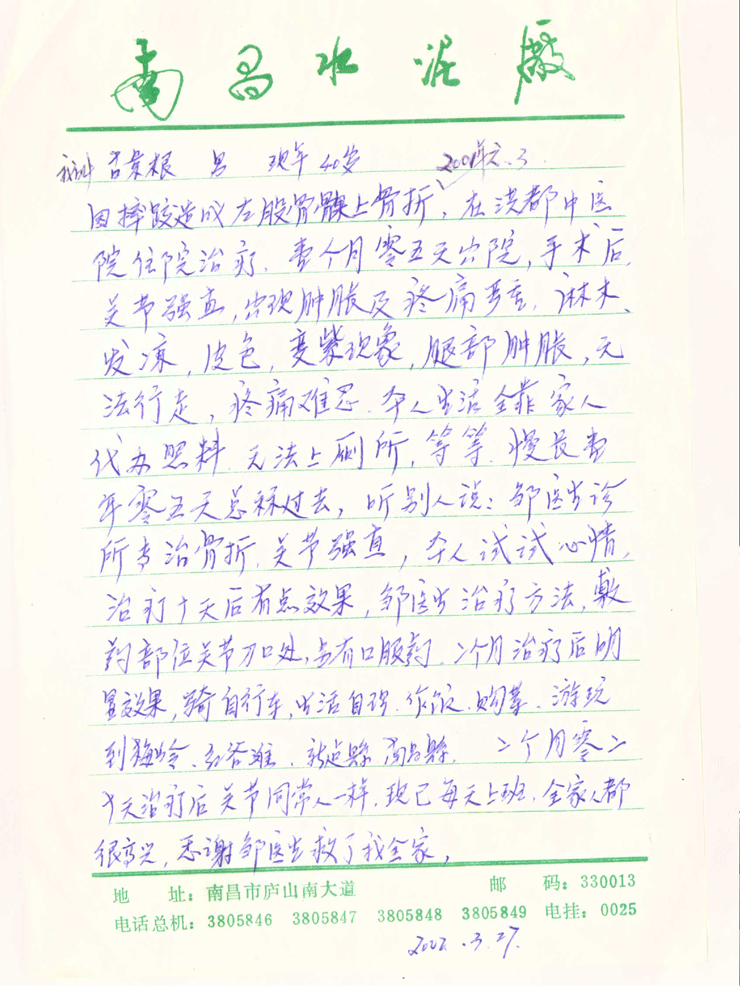 南昌水泥廠
根 男 现年40岁 2001年元.3.
因摔跤造成左股骨髁上骨折,在洪都中医
院住院治疗.壹个月零五天出院,手术后,
关节强直,出现肿胀及疼痛严重.麻木、
发凉,皮色,变紫现象,腿部肿胀,无
法行走,疼痛难忍.本人生活全靠家人
代办照料.无法上厕所,等等.慢长壹
年零五天总算过去,听别人说:邹医生诊
所专治骨折.关节强直,本人试试心情,
治疗十天后有点效果,邹医生治疗方法,敷
药部位关节刀口处,另有口服药.2个月治疗后明
显效果,骑自行车,生活自理.作饭.购菜.游玩
到梅岭.县.南昌县. 二个月零二
十天治疗后关节同常人一样.现已每天上班.全家人都
很高兴,感谢邹医生救了我全家,
地 址:南昌市庐山南大道 邮 码:330013
电话总机:3805846 3805847 3805848 3805849 电挂:0025
2002.3.27.